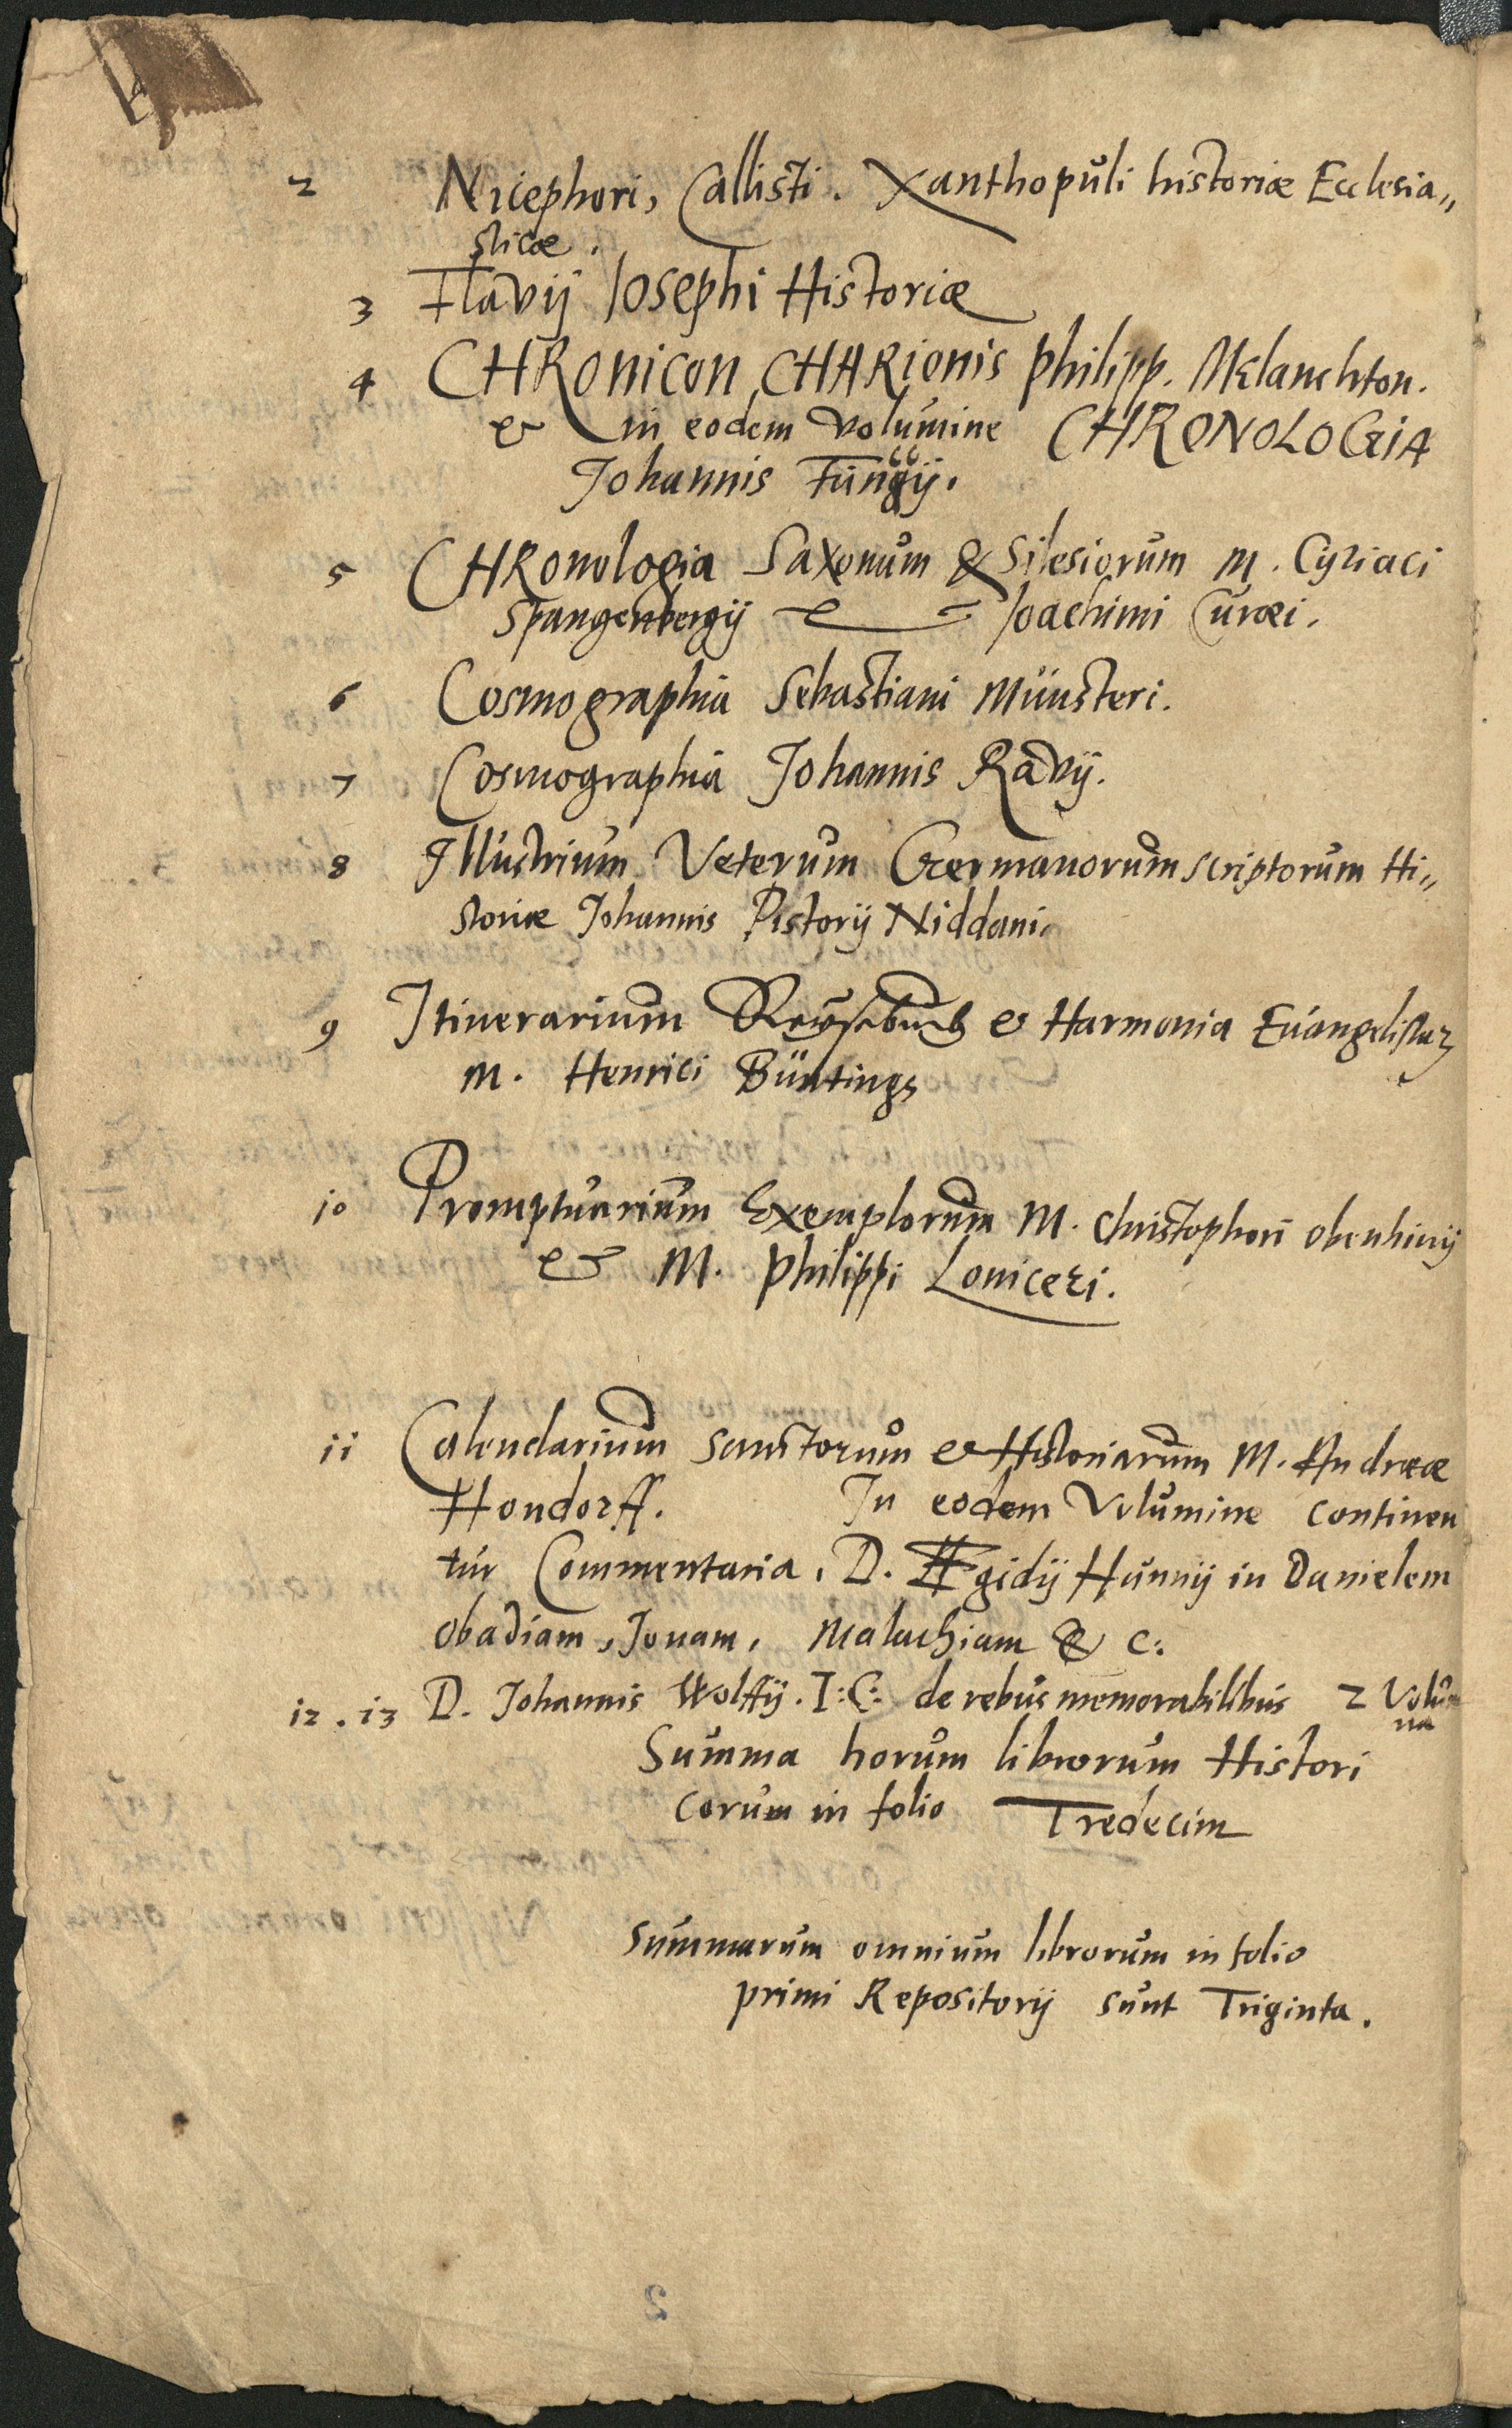 2 Nicephori, Callisti. Xanthopuli historiæ Ecclesia„
sticæ.
3 Flavij Iosephi Historiæ
4 CHRonicon CHARionis Philipp. Melanchton.
& in eodem volumine CHRONOLOGIA
Johannis Funccij.
5 CHRonologia Saxonum & Silesiorum M. Cyriaci
Spangenbergij & Ioachimi Curæi.
6 Cosmographia Sebastiani Münsteri.
7 Cosmographia Johannis Ravij.
8 Illustrium Veterum Germanorum scriptorum Hi„
storiæ Johannis Pistorij Niddani.
9 Itinerarium Reÿsebuch & Harmonia Euangelistarz
M. Henrici Büntings
10 Promptuarium Exemplorum M. Christophori obenhinij
& M. Philippi Loniceri.
11 Calendarium Sanctorum & Historiarum M. Andreæ
Hondorff. In eodem Volumine continen
tur Commentaria, D. Ægidij Hunnij in Danielem
Obadiam, Jonam, Malachiam & c:
12. 13 D. Johannis Wolffij. I:C: de rebus memorabilibus 2 Volum
na
Summa horum librorum Histori
corum in folio Tredecim
Summarum omnium librorum in folio
primi Repositorij sunt Triginta.